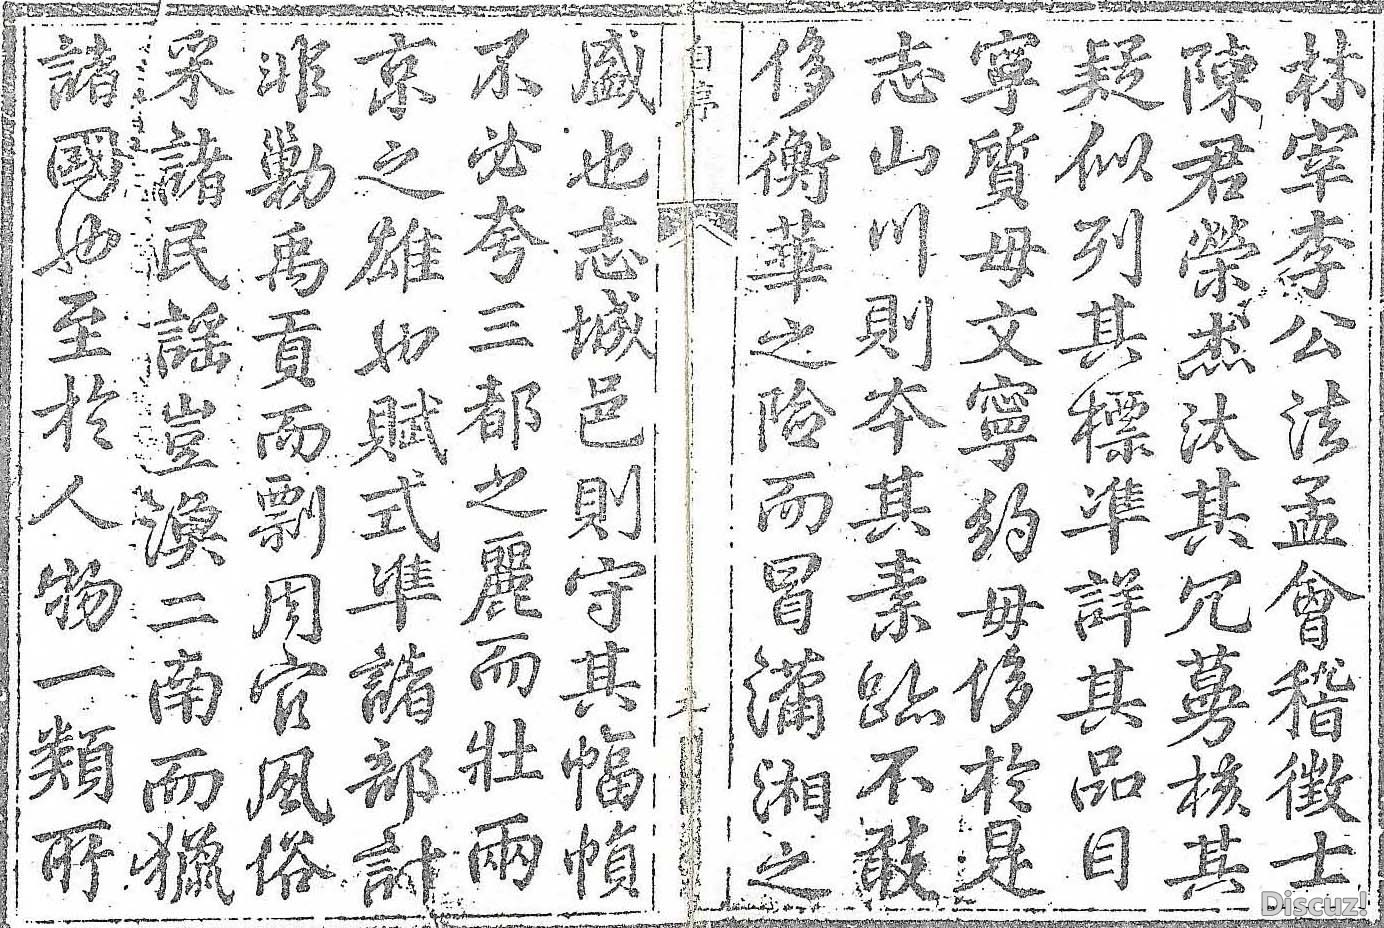 林宰李公法孟會稽徵士
陳君榮烝汰其冗蕪核其
疑似列其標準詳其品目
寧質毋文寧約毋侈於是
志山川則本其素跡不敢
侈衡華之險而冒瀟湘之
自序
盛也志城邑則守其幅幀
不必夸三都之麗而壯兩
京之雄也賦式準諸部計
非勦禹貢而剽周官風俗
采諸民謠豈漁二南而獵
諸國也至於人物一類所
Discuz!